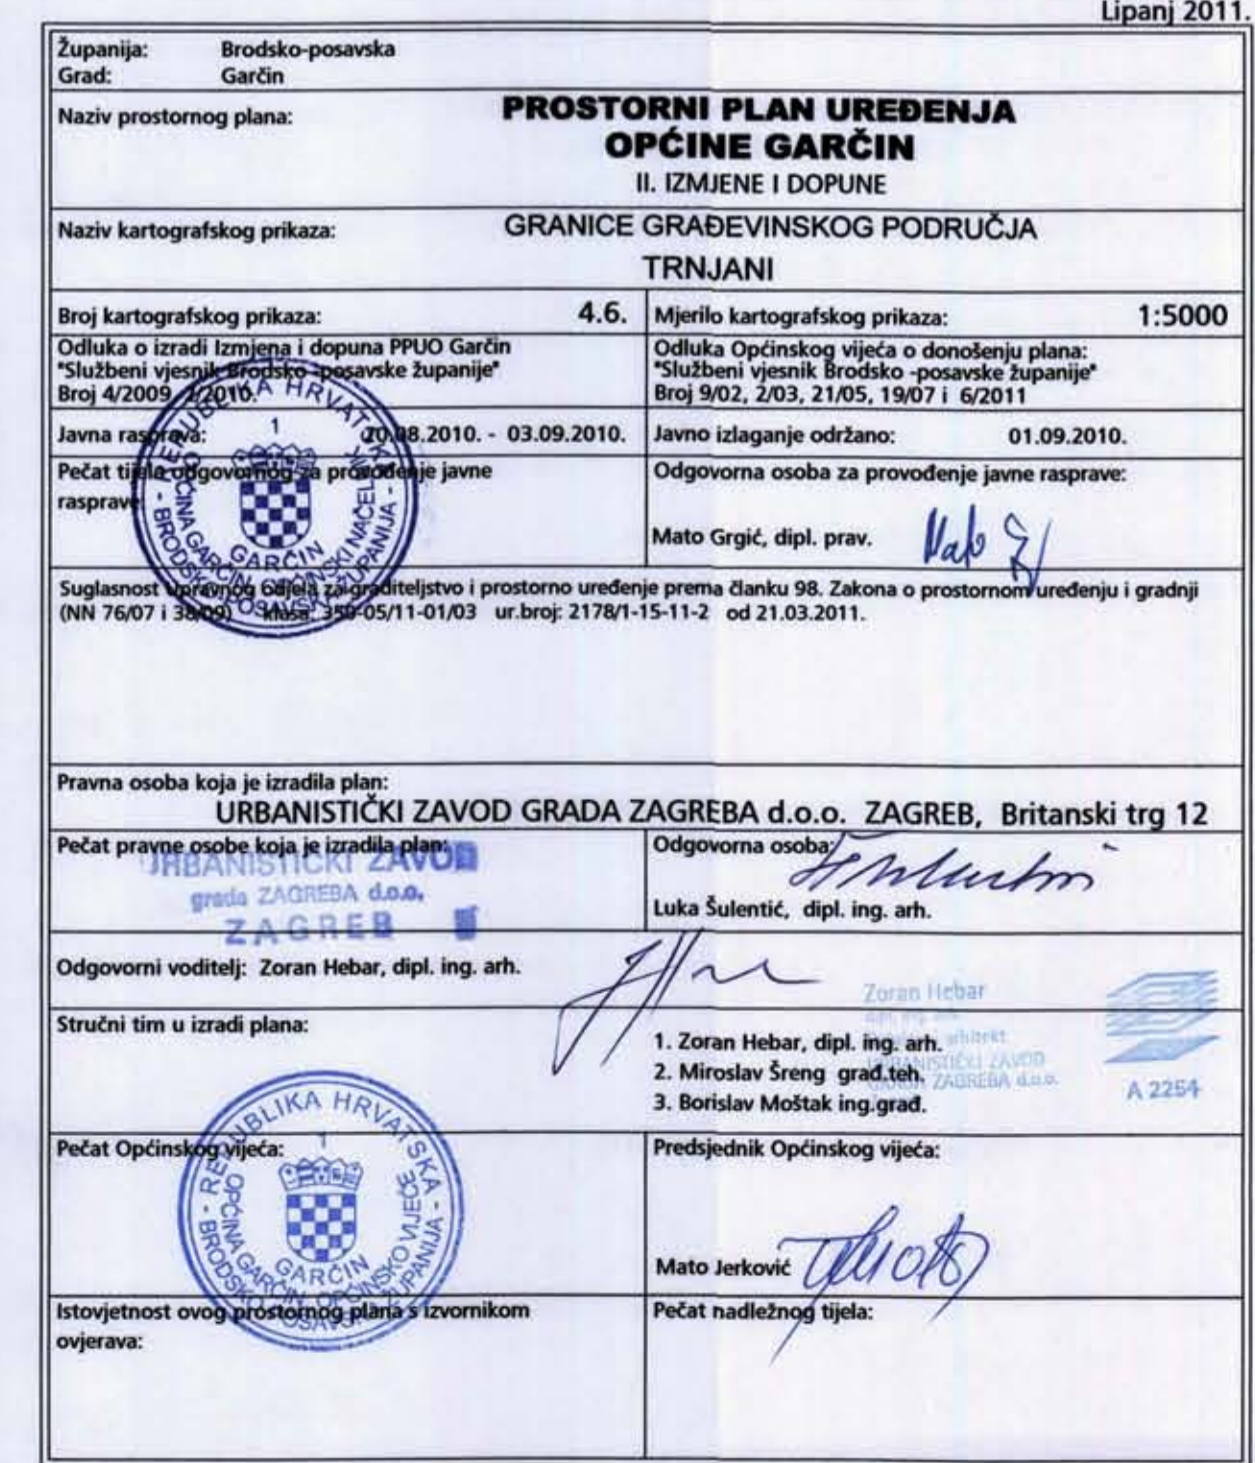 Lipanj 2011.
Županija: Brodsko-posavska
Grad: Garčin
Naziv prostornog plana:
PROSTORNI PLAN UREĐENJA
OPĆINE GARČIN
II. IZMJENE I DOPUNE
Naziv kartografskog prikaza:
GRANICE GRAĐEVINSKOG PODRUČJA
TRNJANI
Broj kartografskog prikaza: 4.6.
Mjerilo kartografskog prikaza: 1:5000
Odluka o izradi Izmjena i dopuna PPUO Garčin
"Službeni vjesnik Brodsko -posavske županije"
Broj 4/2009, 2/2010.
Odluka Općinskog vijeća o donošenju plana:
"Službeni vjesnik Brodsko -posavske županije"
Broj 9/02, 2/03, 21/05, 19/07 i 6/2011
Javna rasprava: 20.08.2010. - 03.09.2010.
Javno izlaganje održano: 01.09.2010.
Pečat tijela odgovornog za provođenje javne
rasprave:
REPUBLIKA HRVATSKA
1
BRODSKO-POSAVSKA ŽUPANIJA
OPĆINA GARČIN, OPĆINSKI NAČELNIK
GARČIN
Odgovorna osoba za provođenje javne rasprave:
Mato Grgić, dipl. prav.
Suglasnost Upravnog odjela za graditeljstvo i prostorno uređenje prema članku 98. Zakona o prostornom uređenju i gradnji
(NN 76/07 i 38/09) klasa: 350-05/11-01/03 ur.broj: 2178/1-15-11-2 od 21.03.2011.
Pravna osoba koja je izradila plan:
URBANISTIČKI ZAVOD GRADA ZAGREBA d.o.o. ZAGREB, Britanski trg 12
Pečat pravne osobe koja je izradila plan:
URBANISTIČKI ZAVOD
grada ZAGREBA d.o.o.
ZAGREB
Odgovorna osoba:
Luka Šulentić, dipl. ing. arh.
Odgovorni voditelj: Zoran Hebar, dipl. ing. arh.
Zoran Hebar
dipl. ing. arh.
arhitekt
URBANISTIČKI ZAVOD
GRADA ZAGREBA d.o.o.
A 2254
Stručni tim u izradi plana:
1. Zoran Hebar, dipl. ing. arh.
2. Miroslav Šreng građ.teh.
3. Borislav Moštak ing.građ.
Pečat Općinskog vijeća:
REPUBLIKA HRVATSKA
1
BRODSKO-POSAVSKA ŽUPANIJA
OPĆINA GARČIN, OPĆINSKO VIJEĆE
GARČIN
Predsjednik Općinskog vijeća:
Mato Jerković
Istovjetnost ovog prostornog plana s izvornikom
ovjerava:
Pečat nadležnog tijela: